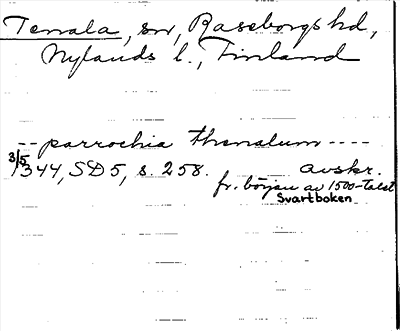 Tenala, sn, Raseborgs hd,
Nylands l., Finland
-- parrochia thenalum ----
3/5 1344, SD 5, s. 258. avskr.
fr. början av 1500-talet
Svartboken